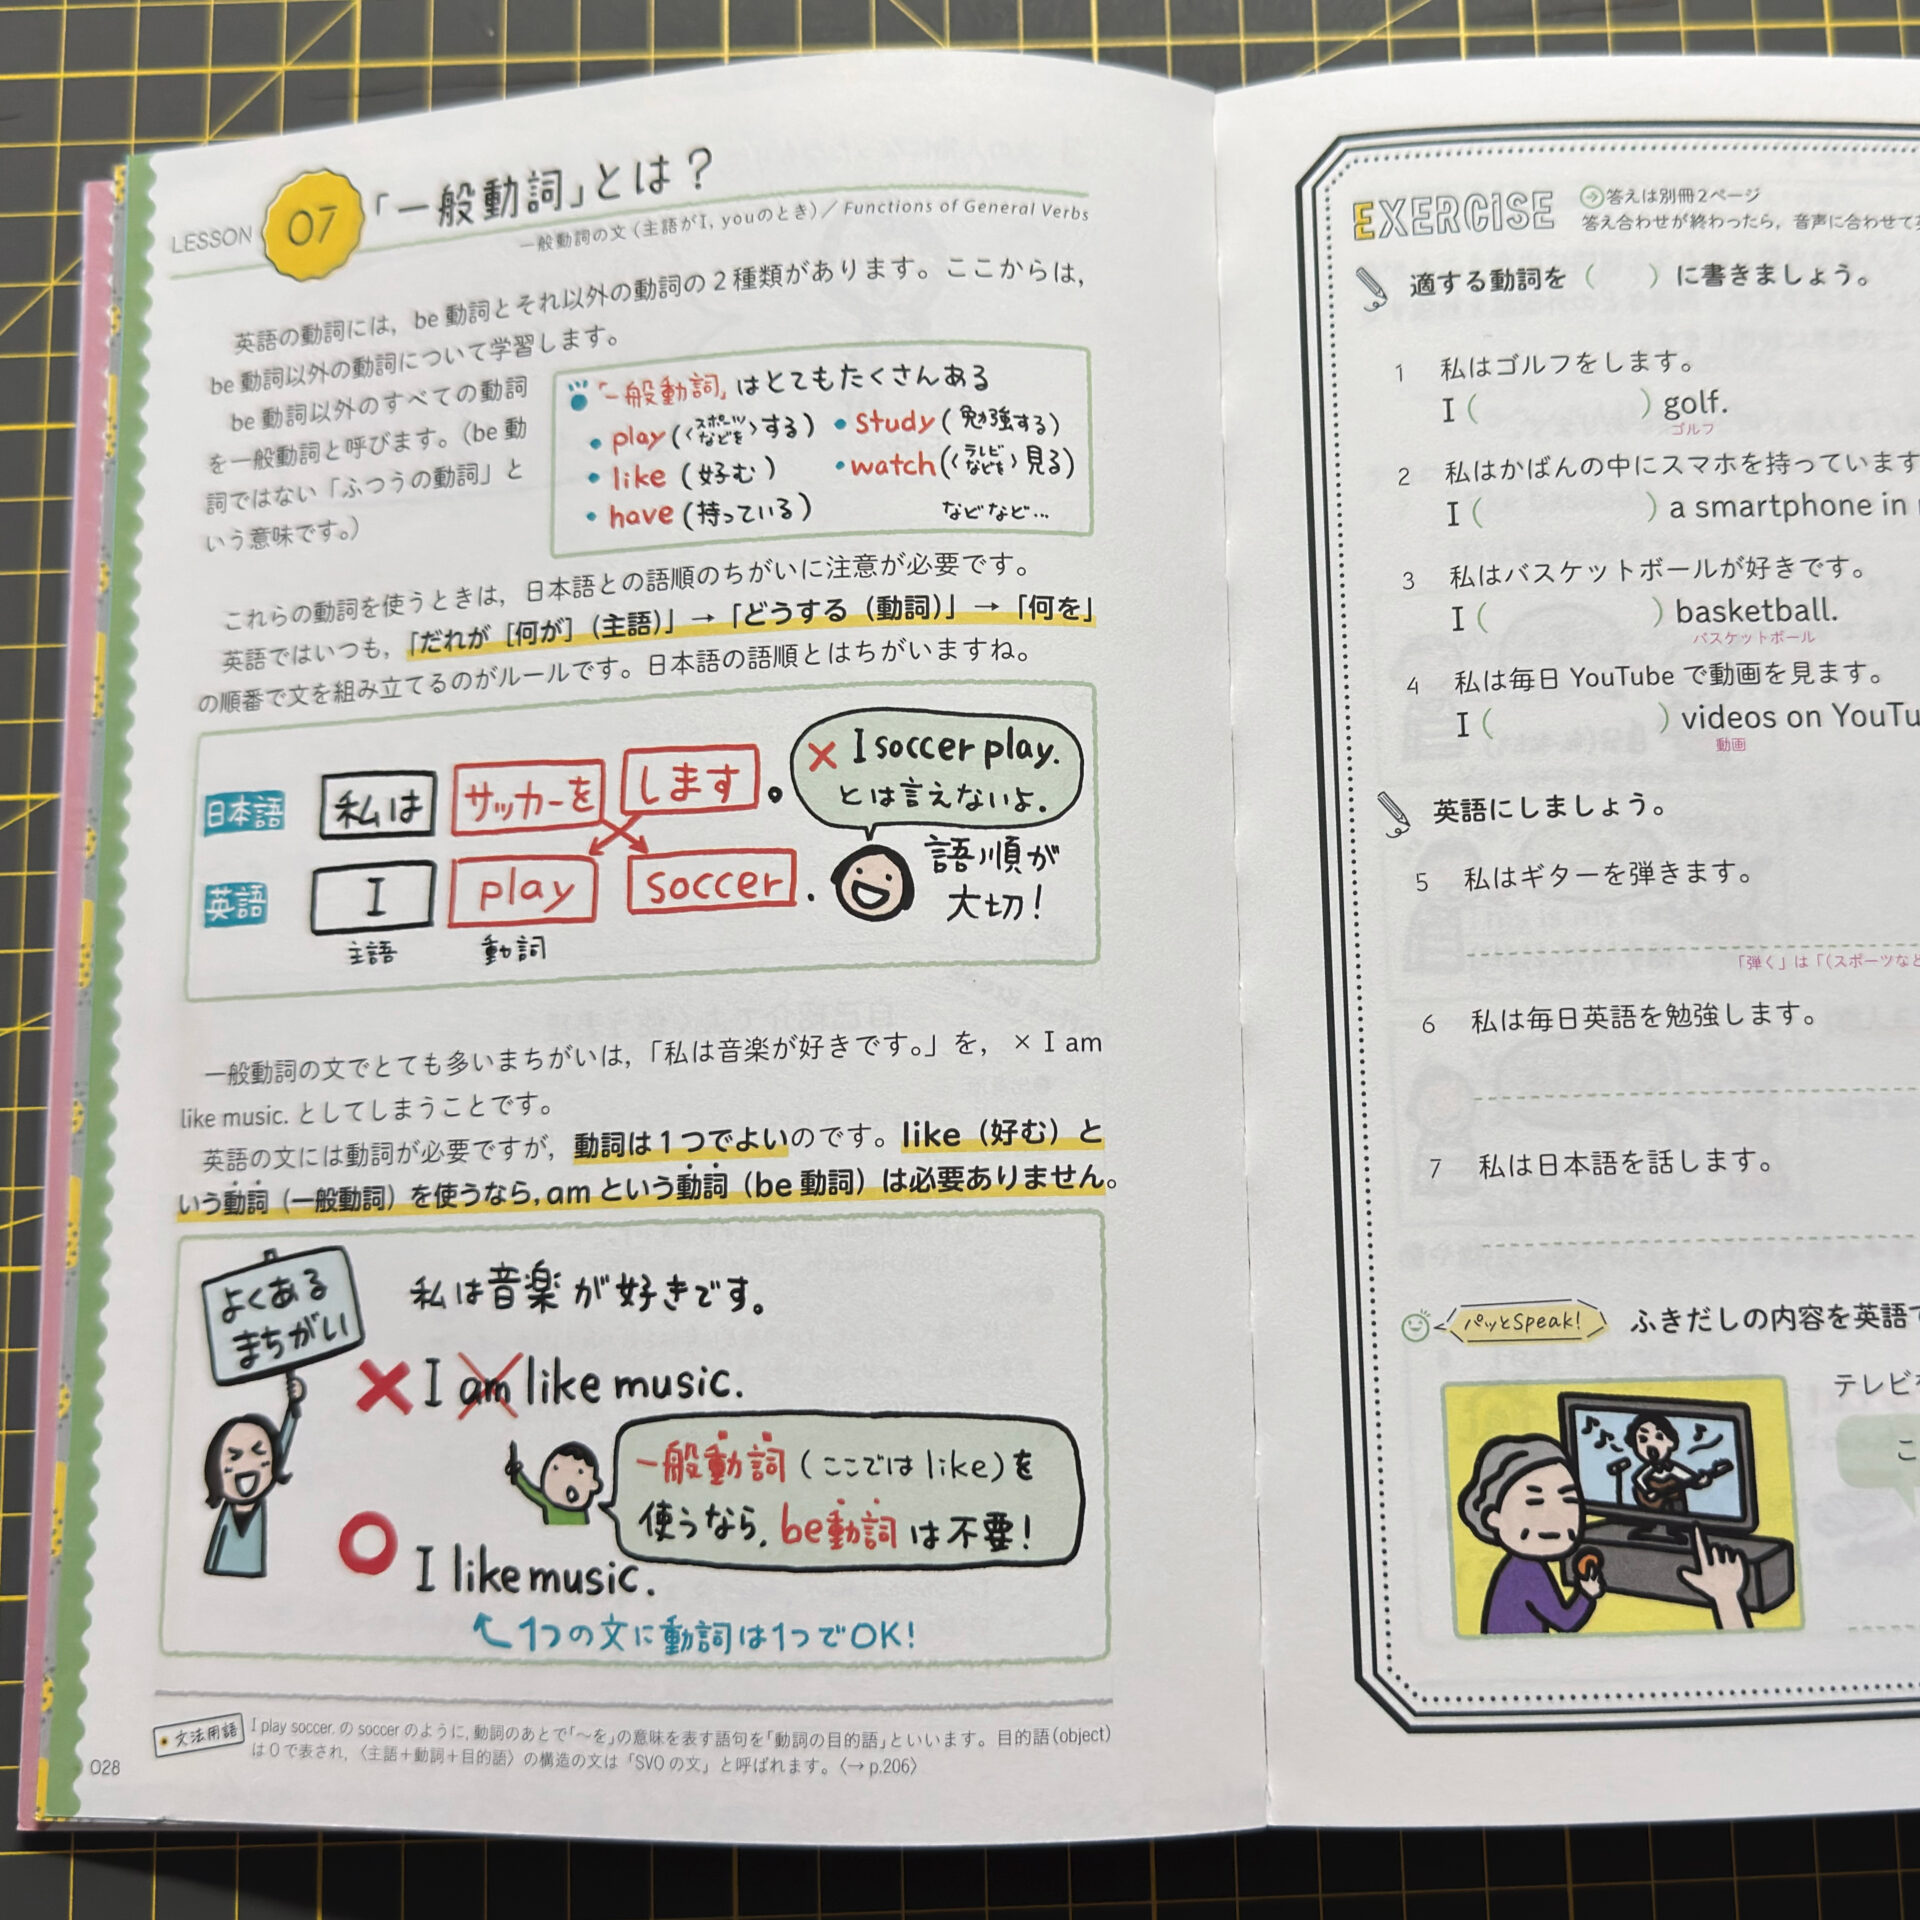 LESSON 07 「一般動詞」とは？
一般動詞の文（主語がI, youのとき）／ Functions of General Verbs
英語の動詞には，be 動詞とそれ以外の動詞の 2 種類があります。ここからは，
be 動詞以外の動詞について学習します。
be 動詞以外のすべての動詞
を一般動詞と呼びます。（be 動
詞ではない「ふつうの動詞」と
いう意味です。）
「一般動詞」はとてもたくさんある
• play（〈スポーツなどを〉する）
• study（勉強する）
• like（好む）
• watch（〈テレビなどを〉見る）
• have（持っている）
などなど…
これらの動詞を使うときは，日本語との語順のちがいに注意が必要です。
英語ではいつも，「だれが［何が］（主語）」→「どうする（動詞）」→「何を」
の順番で文を組み立てるのがルールです。日本語の語順とはちがいますね。
日本語 私は サッカーを します 。
× I soccer play.
とは言えないよ.
英語 I play soccer .
主語 動詞
語順が
大切！
一般動詞の文でとても多いまちがいは，「私は音楽が好きです。」を，× I am
like music. としてしまうことです。
英語の文には動詞が必要ですが，動詞は 1 つでよいのです。like（好む）と
いう動詞（一般動詞）を使うなら, am という動詞（be 動詞）は必要ありません。
よくある
まちがい
私は音楽が好きです。
× I am like music.
一般動詞（ここでは like）を
使うなら, be動詞は不要！
○ I like music.
1つの文に動詞は1つでOK！
• 文法用語 I play soccer. の soccer のように, 動詞のあとで「～を」の意味を表す語句を「動詞の目的語」といいます。目的語(object)
は O で表され，〈主語＋動詞＋目的語〉の構造の文は「SVO の文」と呼ばれます。〈→ p.206〉
028
EXERCISE
答えは別冊2ページ
答え合わせが終わったら，音声に合わせて
適する動詞を（　　）に書きましょう。
1 私はゴルフをします。
I (　　) golf.
ゴルフ
2 私はかばんの中にスマホを持っています
I (　　) a smartphone in
3 私はバスケットボールが好きです。
I (　　) basketball.
バスケットボール
4 私は毎日 YouTube で動画を見ます。
I (　　) videos on YouTu
動画
英語にしましょう。
5 私はギターを弾きます。
「弾く」は「(スポーツなど
6 私は毎日英語を勉強します。
7 私は日本語を話します。
パッとSpeak! ふきだしの内容を英語で
テレビを
こ